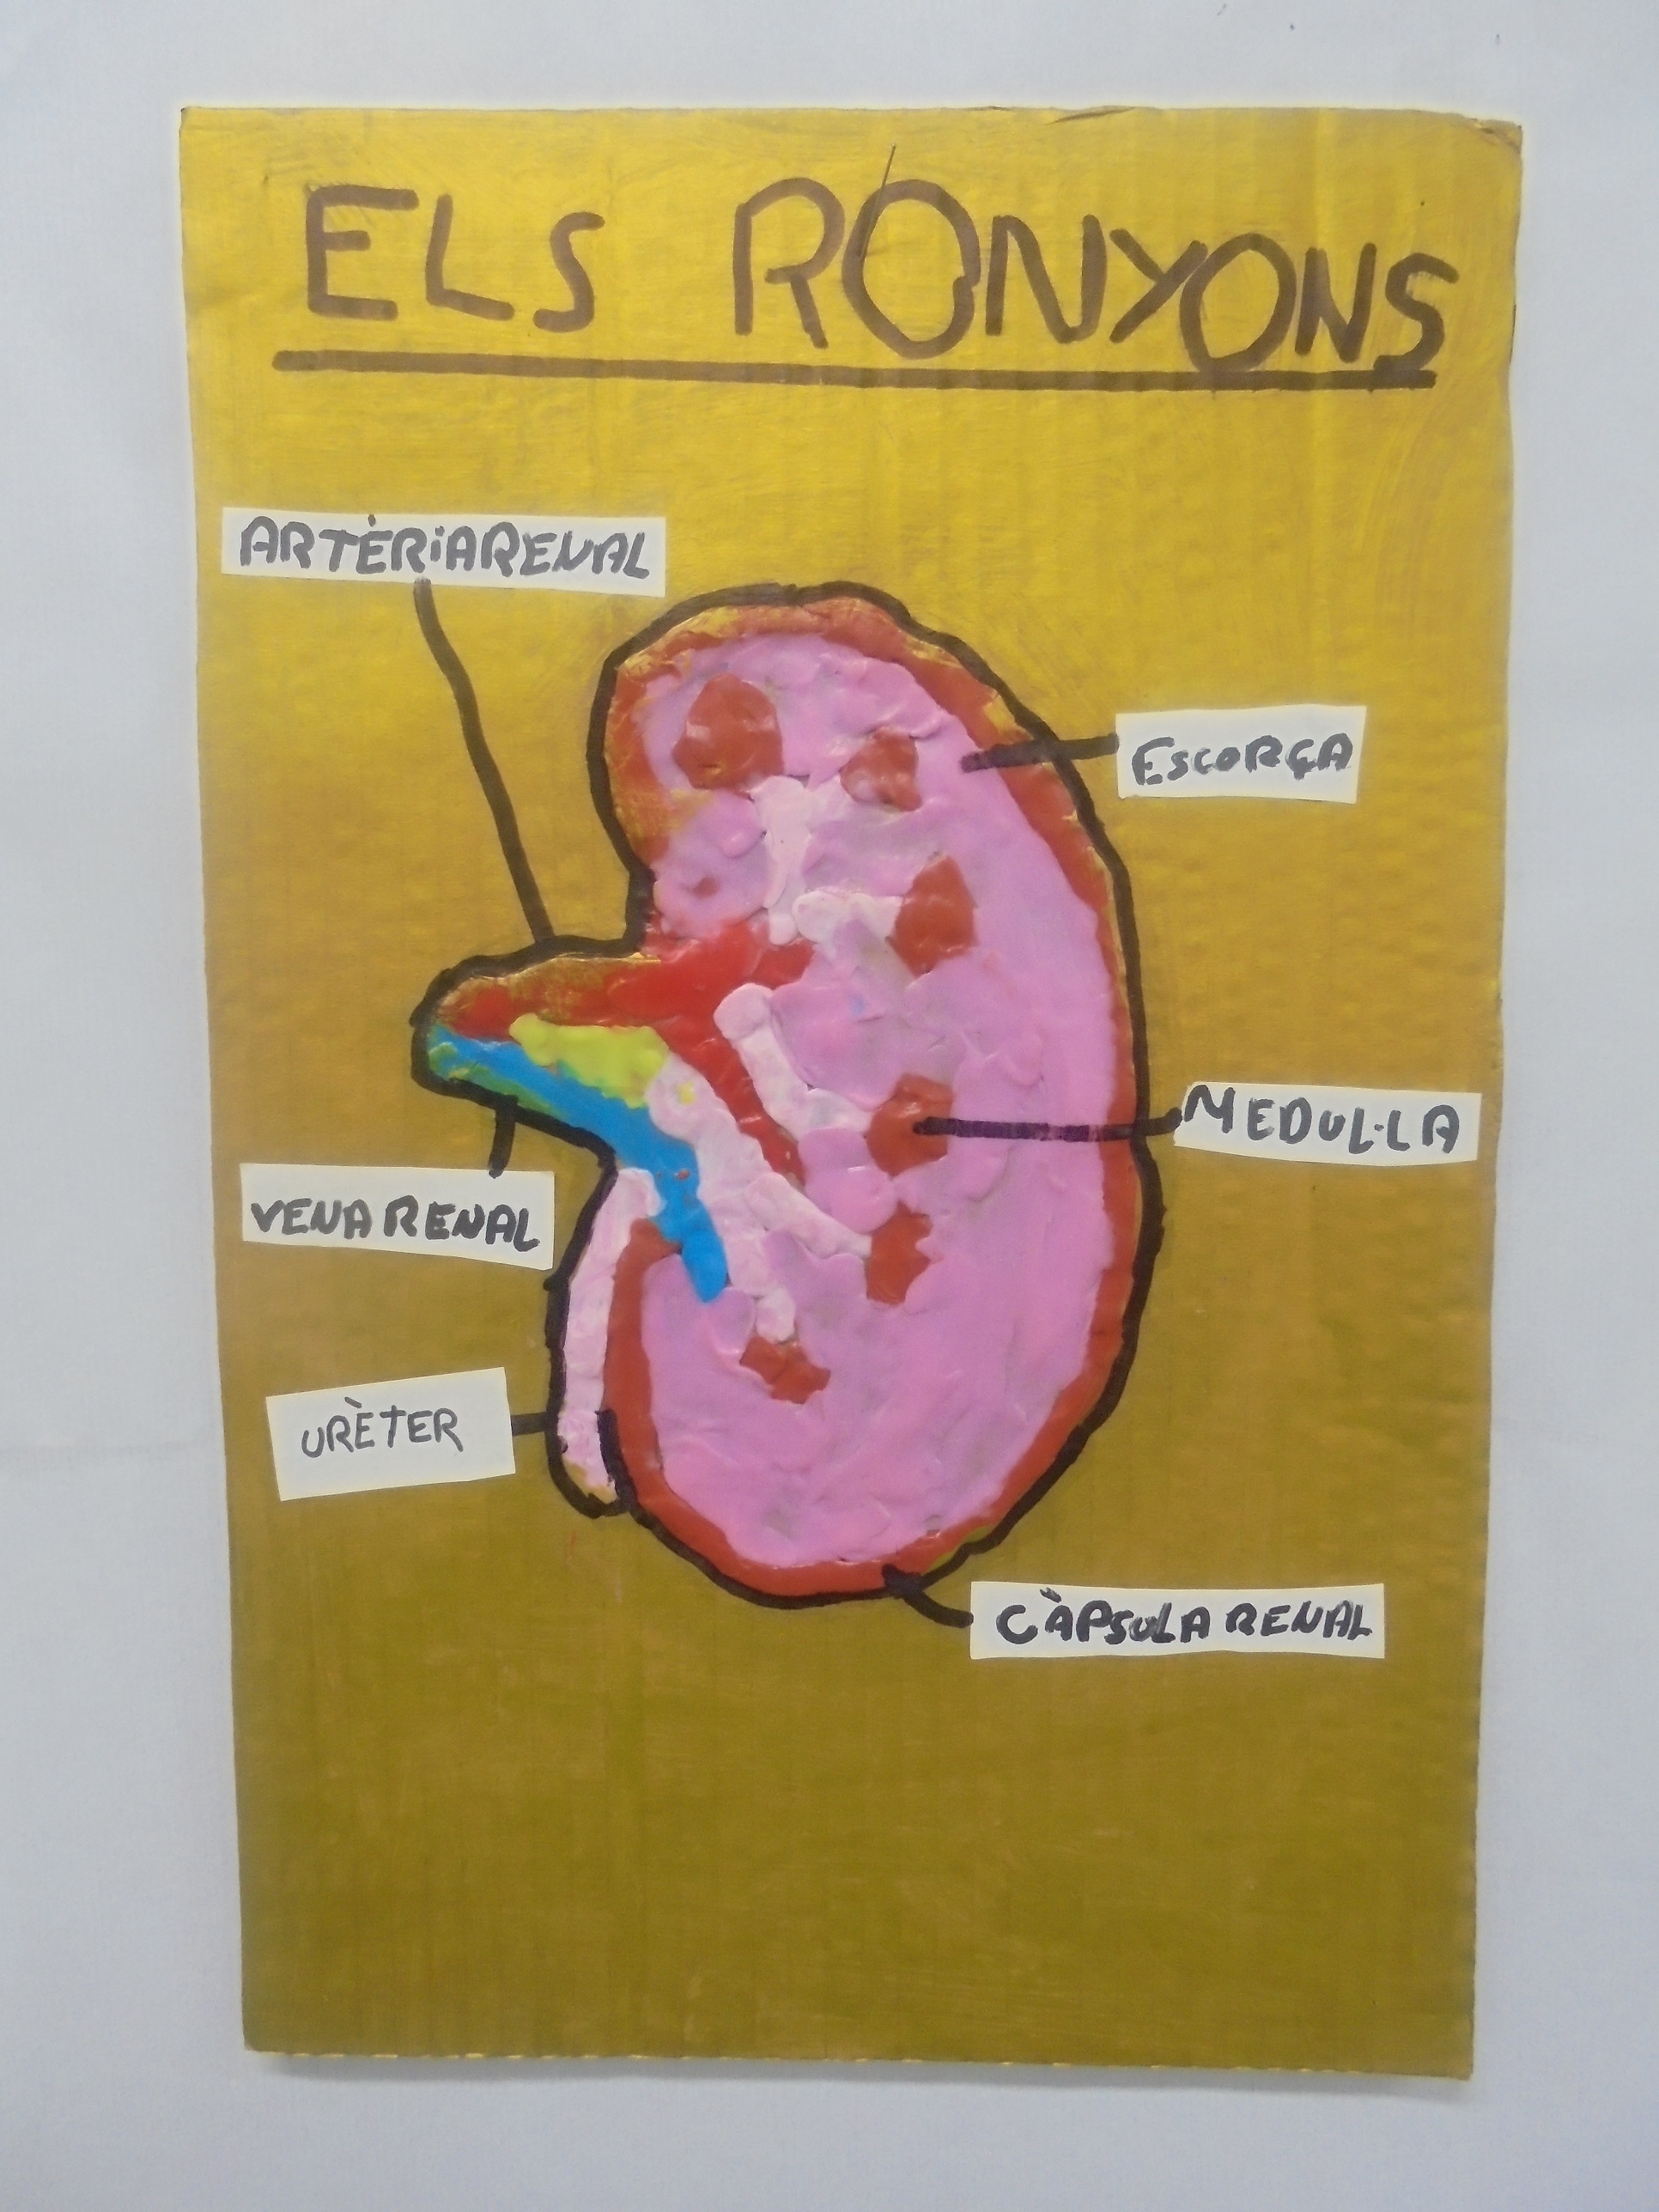 ELS RONYONS
ARTÈRiA RENAL
ESCORÇA
MEDUL·LA
VENA RENAL
URÈTER
CÀPSULA RENAL